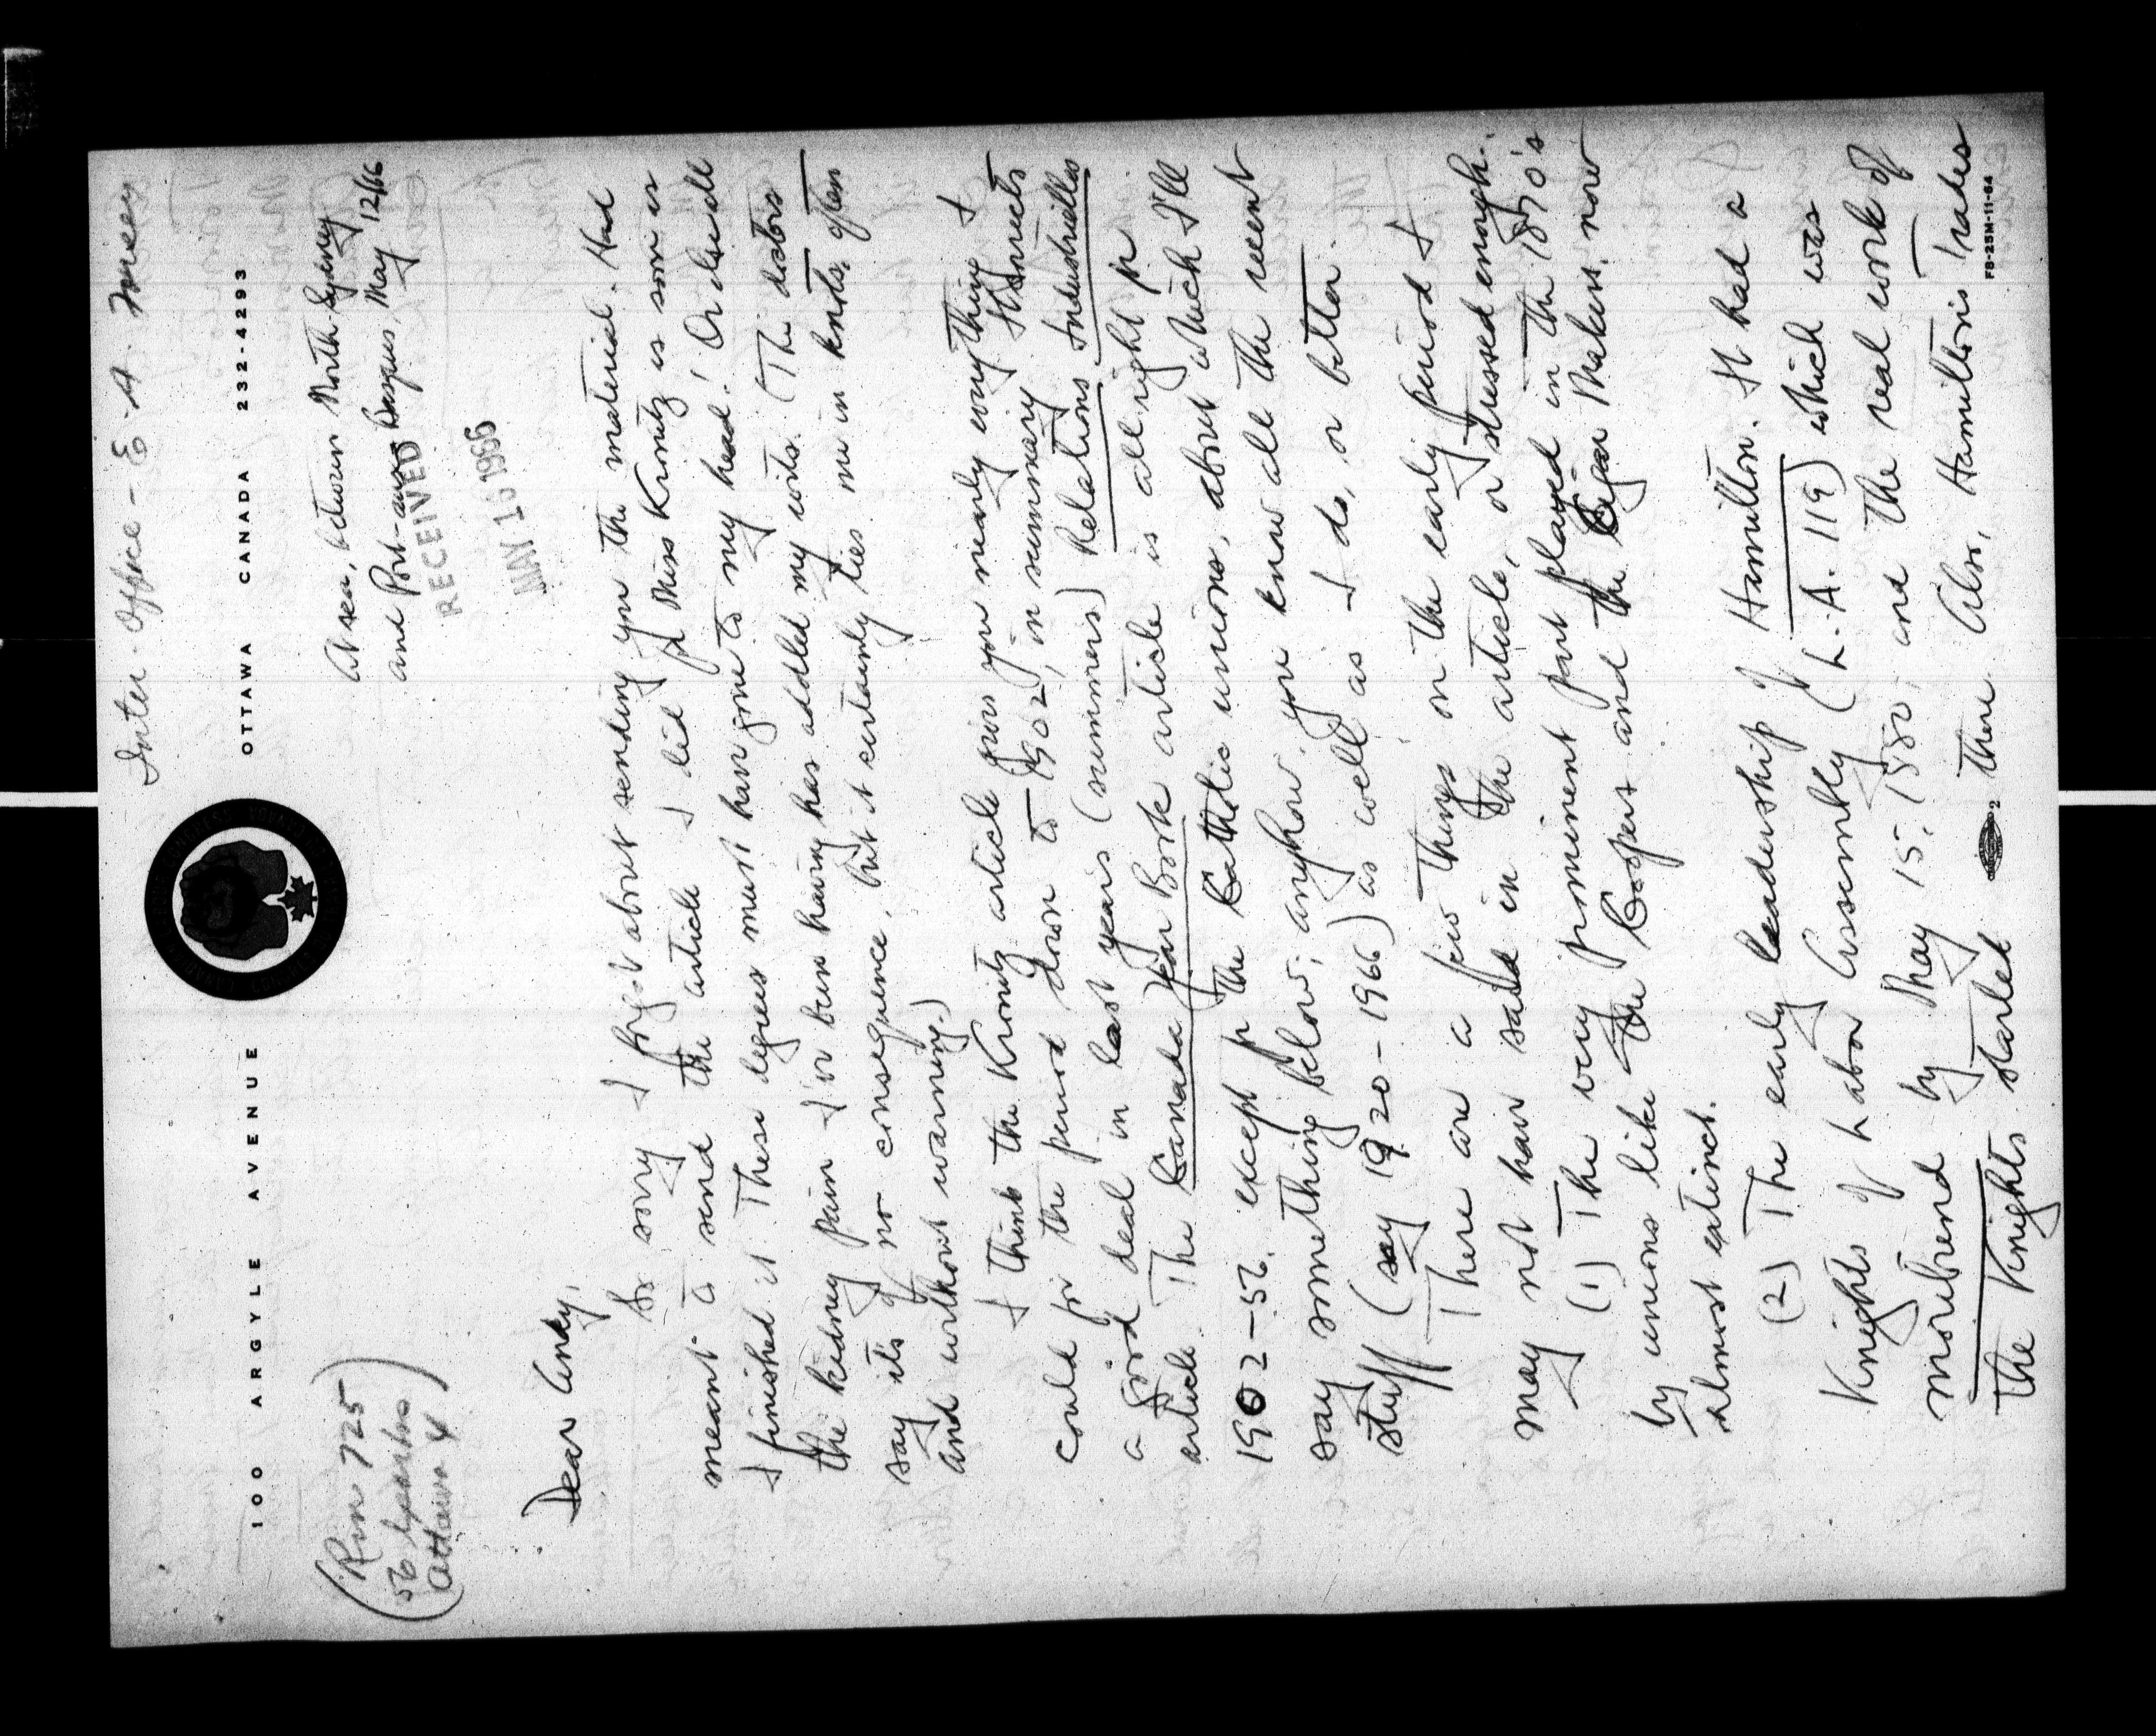 Inter-Office - E. A. Forsey
100 ARGYLE AVENUE OTTAWA CANADA 232-4293
(Rm 725
56 Sparks
Ottawa 4)
At sea, between North Sydney
and Port-aux-Basques, May 12/66
RECEIVED
MAY 16 1966
Dear Andy,
So sorry I forgot about sending you the material. Had
meant to send the article I did for Miss Kronitz as soon as
I finished it. These degrees must have gone to my head! Or else all
the kidney pain I've been having has addled my wits. (The doctors
say it's of no consequence, but it certainly ties me in knots, often
and without warning.)
I think the Kronitz article gives you nearly everything I
could for the period down to 1902, in summary. Stewart's
a good deal in last year's (summer's) Relations Industrielles
article. The Canada Year Book article is all right for
1902-56, except for the Catholic unions, about which I'll
say something below; anyhow, you know all the recent
stuff (say 1920-1966) as well as I do, or better.
There are a few things on the early period I
may not have said in the article, or stressed enough.
(1) The very prominent part played in the 1870's
by unions like the Coopers and the Cigar Makers, now
almost extinct.
(2) The early leadership of Hamilton. It had a
Knights of Labor Assembly (L.A. 119) which was
moribund by May 15, 1880; and the real work of
the Knights started there. Also, Hamilton's Trades
2
FS-25M-11-64